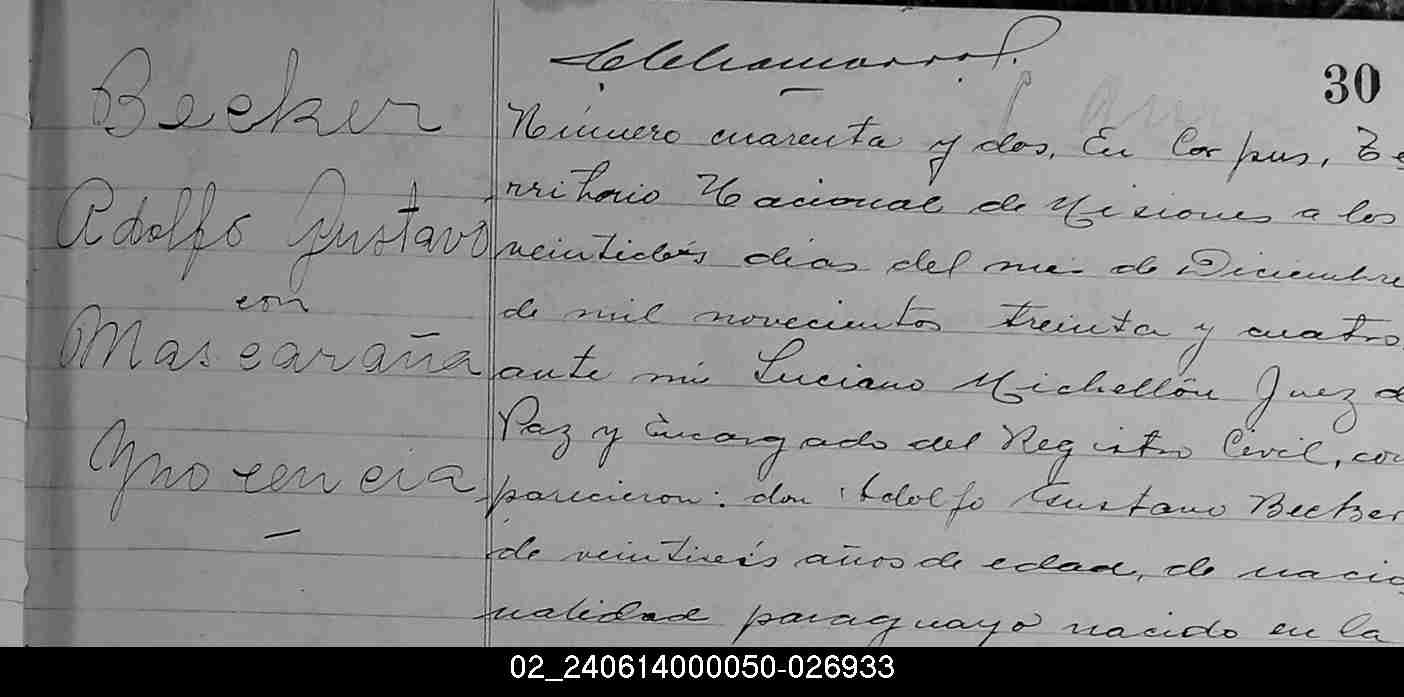 30
Becker
Adolfo Gustavo
con
Mascaraña
Ynocencia
Número cuarenta y dos. En Corpus, Te
rritorio Nacional de Misiones a los
veintidós dias del mes de Diciembre
de mil novecientos treinta y cuatro,
ante mi Luciano Michellón Juez d
Paz y Encargado del Registro Civil, com
parecieron: don Adolfo Gustavo Becker
de veintiseis años de edad, de nacio
nalidad paraguayo nacido en la
02_240614000050-026933